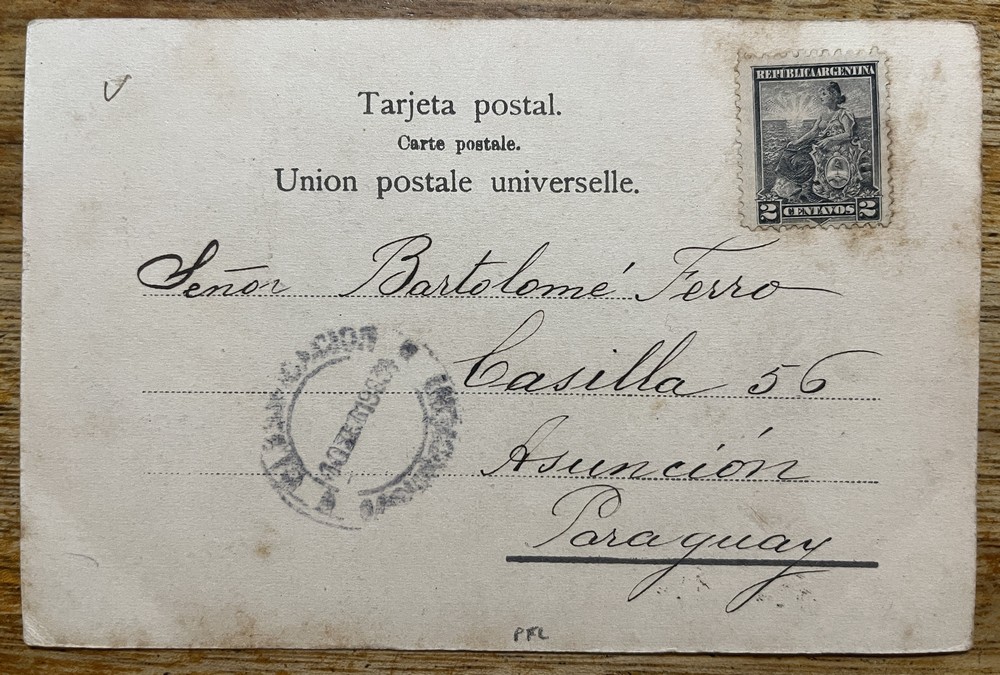 REPUBLICA ARGENTINA
2 CENTAVOS 2
Tarjeta postal.
Carte postale.
Union postale universelle.
Señor Bartolomé Ferro
Casilla 56
Asunción
Paraguay
PFL